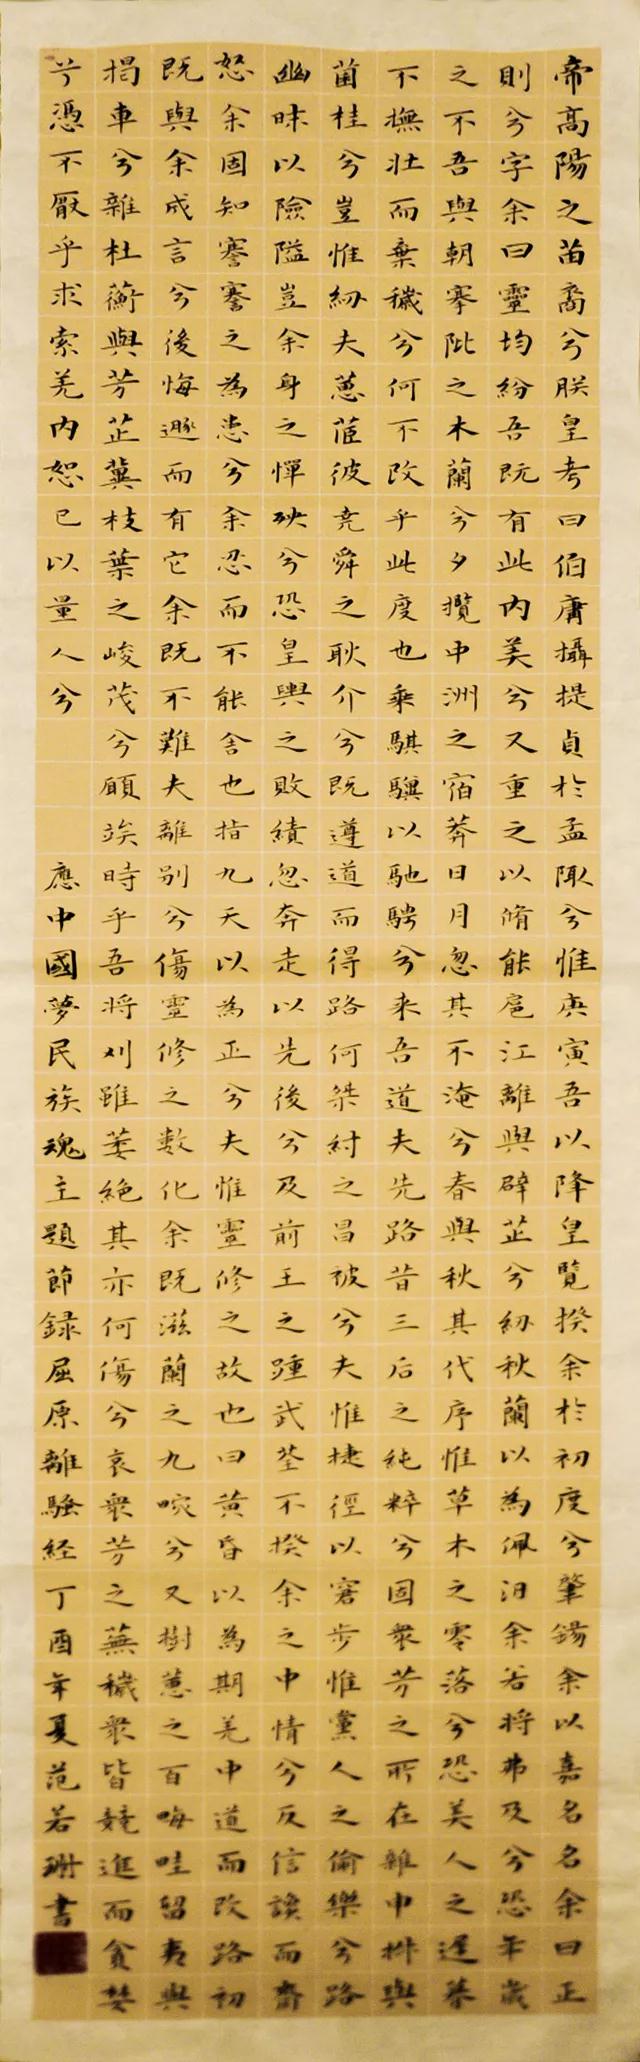 帝高陽之苗裔兮朕皇考曰伯庸攝提貞於孟陬兮惟庚寅吾以降皇覽揆余於初度兮肇錫余以嘉名名余曰正
則兮字余曰靈均紛吾既有此内美兮又重之以脩能扈江離與辟芷兮紉秋蘭以為佩汨余若將弗及兮恐年歲
之不吾與朝搴阰之木蘭兮夕攬中洲之宿莽日月忽其不淹兮春與秋其代序惟草木之零落兮恐美人之遲暮
不撫壯而棄穢兮何不改乎此度也乘騏驥以馳騁兮来吾道夫先路昔三后之純粹兮固衆芳之所在雜申椒與
菌桂兮豈惟紉夫蕙茝彼堯舜之耿介兮既遵道而得路何桀紂之昌被兮夫惟捷徑以窘步惟黨人之偷樂兮路
幽昧以險隘豈余身之憚殃兮恐皇輿之敗績忽奔走以先後兮及前王之踵武荃不揆余之中情兮反信讒而齌
怒余固知謇謇之為患兮余忍而不能舍也指九天以為正兮夫惟靈修之故也曰黃昏以為期羌中道而改路初
既與余成言兮後悔遯而有它余既不難夫離别兮傷靈修之數化余既滋蘭之九畹兮又樹蕙之百畮畦留夷與
揭車兮雜杜蘅與芳芷冀枝葉之峻茂兮願竢時乎吾將刈雖萎絕其亦何傷兮哀衆芳之蕪穢衆皆競進而貪婪
兮憑不厭乎求索羌内恕己以量人兮 應中國夢民族魂主題節録屈原離騷経丁酉年夏范若琳書